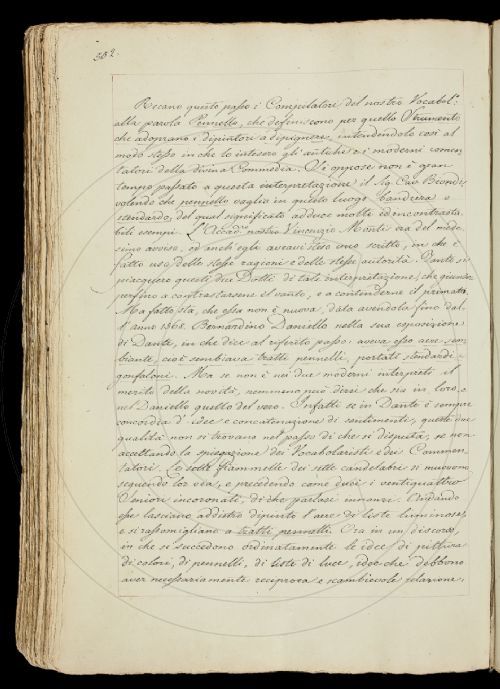 302.
Recano questo passo i Compilatori del nostro Vocabol:
alla parola Pennello, che definiscono per quello Strumento
che adoprano i dipintori a dipignere, intendendolo così al
modo stesso in che lo intesero gli antichi e i moderni comen
tatori della Divina Commedia. Si oppose non è gran
tempo passato a questa interpretazione il Sig. Cav Biondi
volendo che pennello vaglia in questo luogo bandiera o
stendardo, del qual significato adduce molti ed incontrasta
bili esempi. L'Accad.co nostro Vincenzio Monti era del mede
simo avviso, ed anch'egli aveavi steso uno scritto, in che è
fatto uso delle stesse ragioni e delle stesse autorità. Tanto si
piacquero questi due Dotti di tale interpretazione, che giunser
perfino a contrastarsene il vanto, e a contenderne il primato.
Ma fatto sta, che essa non è nuova, data avendola fino dal
l'anno 1568. Bernardino Daniello nella sua esposizione
di Dante, in che dice al riferito passo: aveva esso aere sem
biante, cioè sembiava tratti pennelli, portati stendardi e
gonfaloni. Ma se non è nei due moderni interpreti il
merito della novità, nemmeno può dirsi che sia in loro, e
nel Daniello quello del vero. Infatti se in Dante è sempre
concordia d'idee e concatenazione di sentimenti, queste due
qualità non si trovano nel passo di che si disputa, se non
accettando la spiegazione dei Vocabolaristi e dei Commen
tatori. Le sette fiammelle dei sette candelabri si muovono
seguendo lor via, e precedendo come duci i ventiquattro
Seniori incoronati, di che parlasi innanzi. Andando
esse lasciano addietro dipinto l'aere di liste luminose,
e si rassomigliano a tratti pennelli. Ora in un discorso,
in che si succedono ordinatamente le idee di pittura
di colori, di pennelli, di liste di luce, idee che debbono
aver necessariamente reciproca e scambievole relazione,